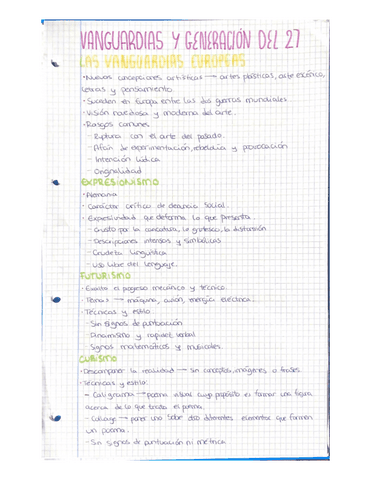 VANGUARDIAS Y GENERACIÓN DEL 27
LAS VANGUARDIAS EUROPEAS
• Nuevas concepciones artísticas → artes plásticas, arte escénico,
letras y pensamiento.
• Suceden en Europa entre las dos guerras mundiales.
• Visión novedosa y moderna del arte.
• Rasgos comunes
- Ruptura con el arte del pasado.
- Afán de experimentación, rebeldía y provocación
- Intención lúdica
- Originalidad
EXPRESIONISMO
• Alemania
• Carácter crítico de denuncia social.
• Expresividad que deforma lo que presenta.
- Gusto por la caricatura, lo grotesco, la distorsión
- Descripciones intensas y simbólicas
- Crudeza lingüística
- Uso libre del lenguaje.
FUTURISMO
• Exalta el progreso mecánico y técnico.
• Temas → máquina, avión, energía eléctrica.
• Técnicas y estilo
- Sin signos de puntuación
- Dinamismo y rapidez verbal
- Signos matemáticos y musicales.
CUBISMO
• Descomponer la realidad → sin conceptos, imágenes o frases
• Técnicas y estilo:
- Caligrama → poema visual cuyo propósito es formar una figura
acerca de lo que trata el poema.
- Collage → poner uno sobre otro diferentes elementos que formen
un poema.
- Sin signos de puntuación ni métrica